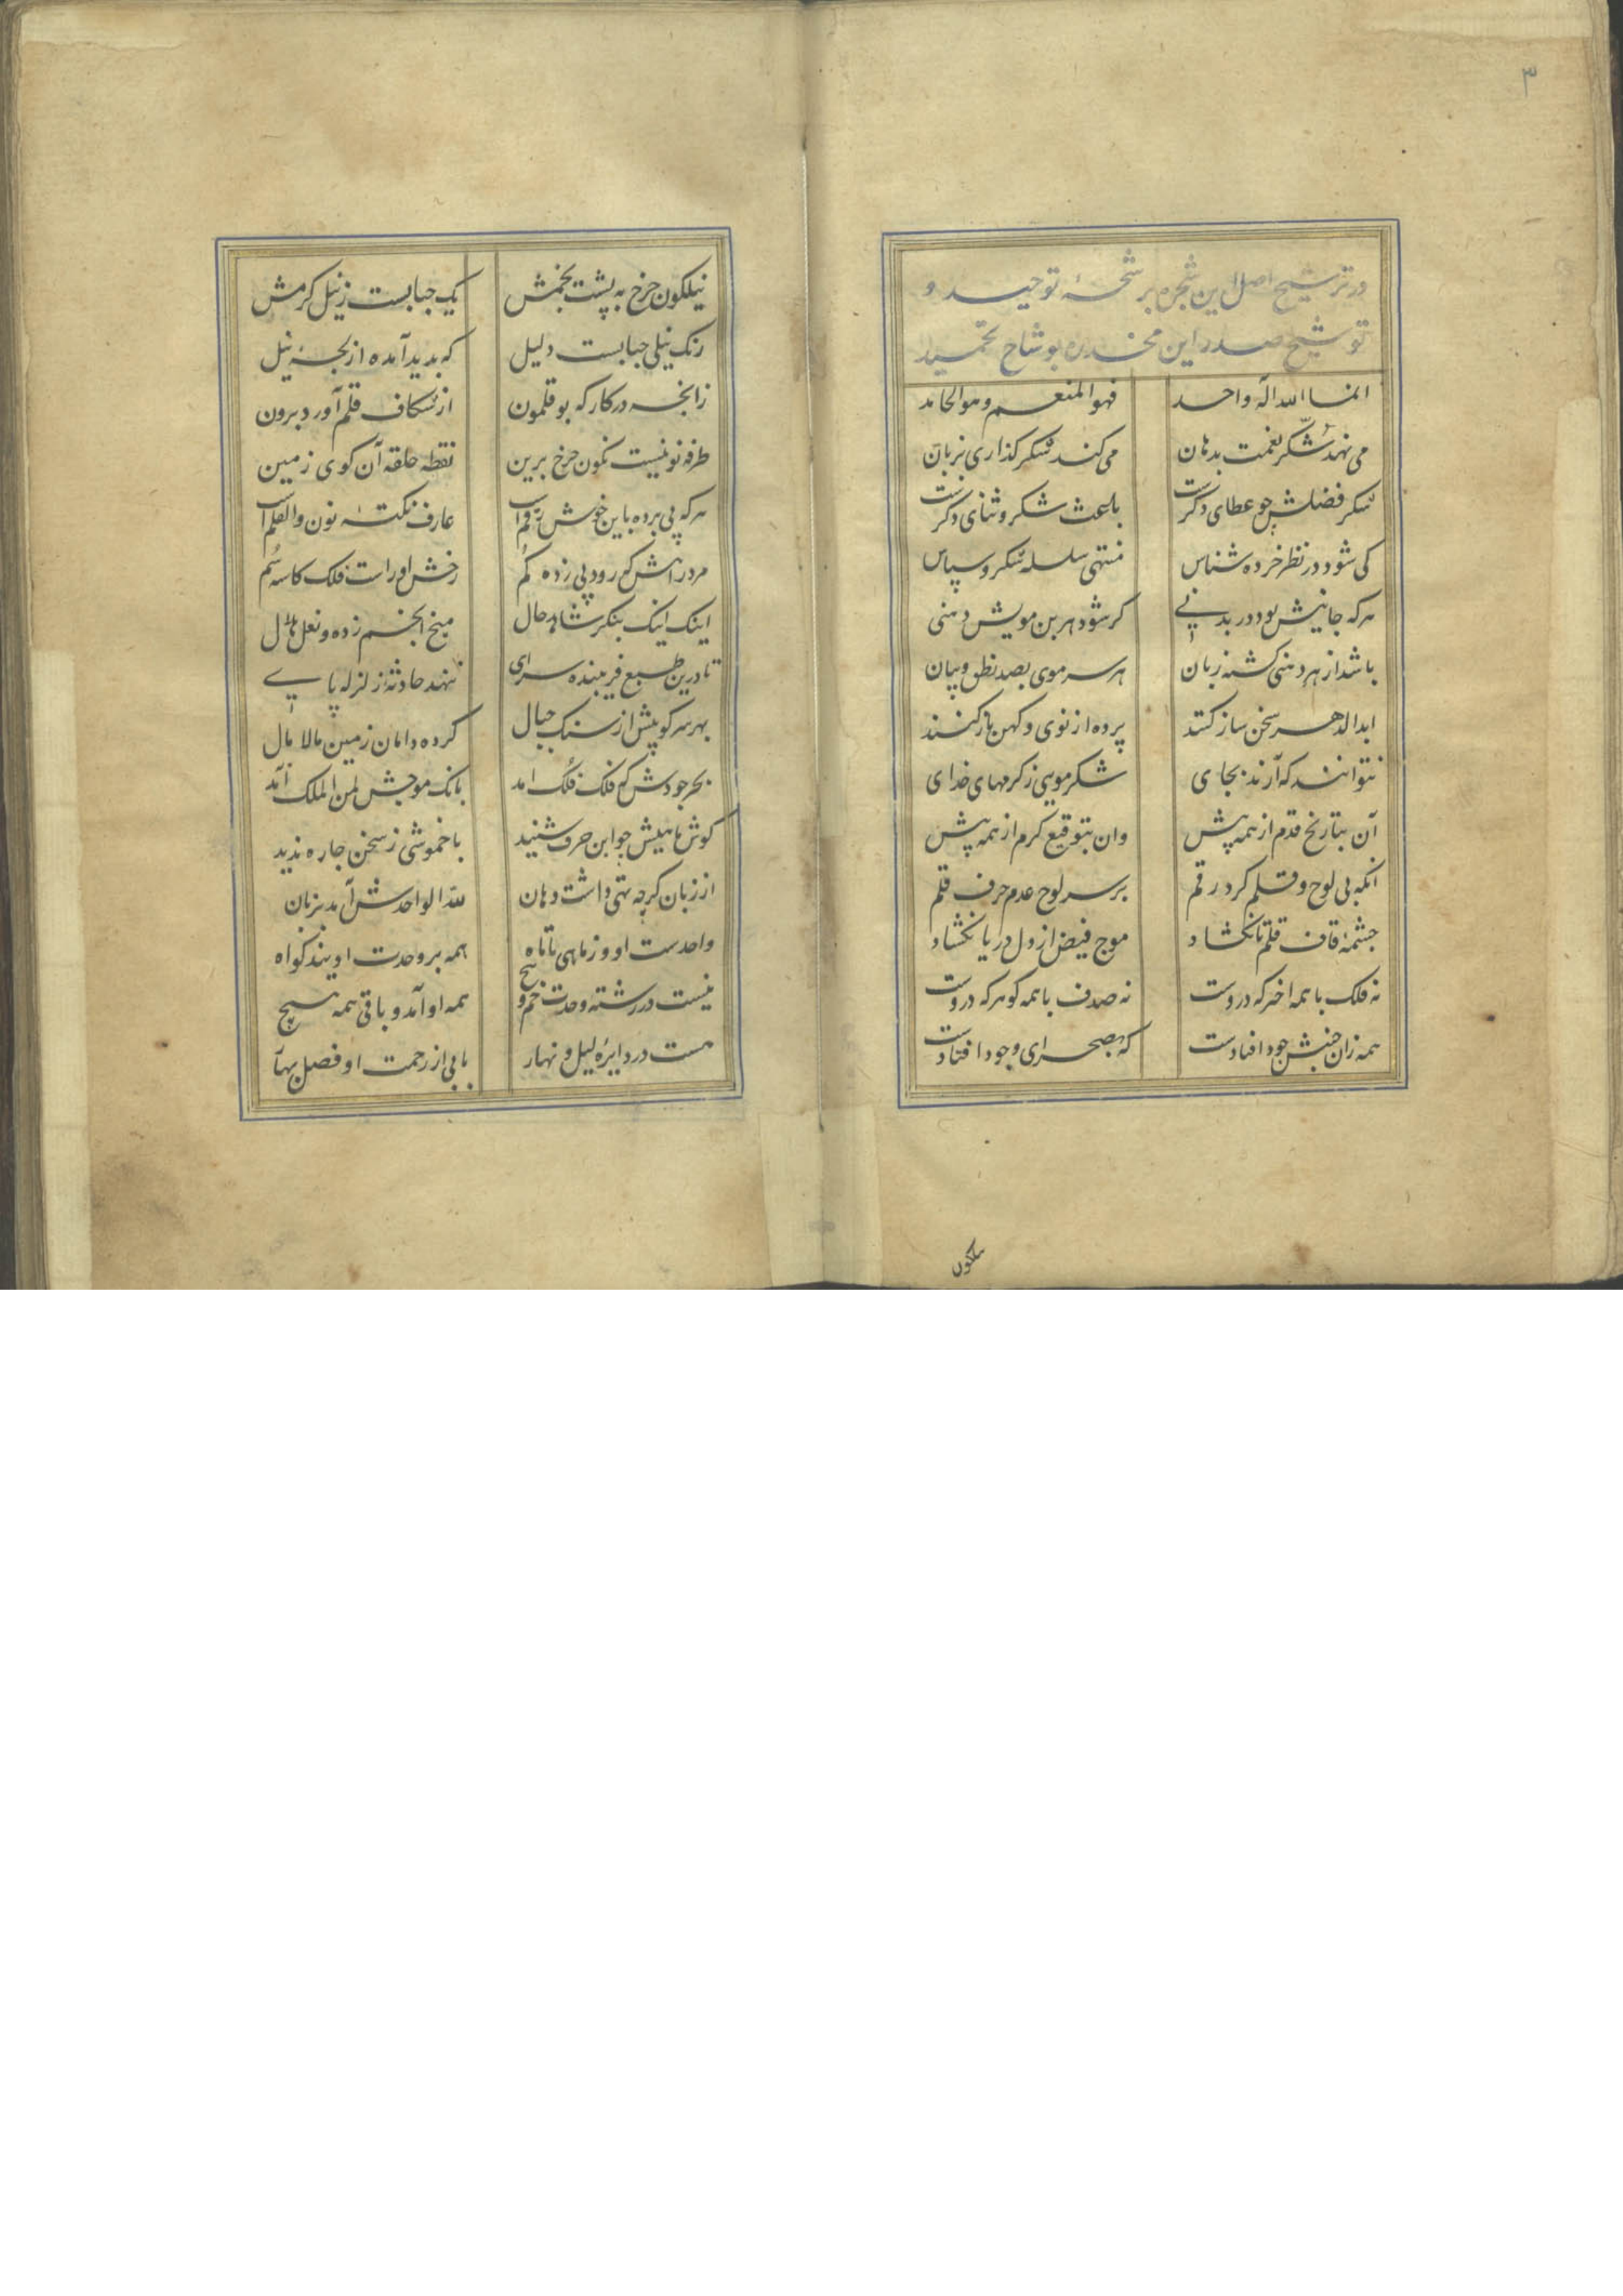 ۳
در ترشیح اصل این شجره بر شحهٔ توحید و
توشیح صدر این مخدره بوشاح تحمید
انما الله اله واحد فهو المنعم و هو الحامد
می نهد شکر نعمت بدهان می کند شکر کذاری بزبان
شکر فضلش چو عطای دکرست باعث شکر و ثنای دکرست
کی شود در نظر خرده شناس منتهی سلسله شکر و سپاس
هر که جانیش بود در بدنی کر شود هر بن مویش دهنی
باشد از هر دهنی کشته زبان هر سر موی بصد نطق و بیان
ابد الدهر سخن ساز کنند پرده از نوی و کهن باز کنند
نتوانند که آرند بجای شکر مویی ز کرمهای خدای
آن بتاریخ قدم از همه پیش وان بتوقیع کرم از همه پیش
آنکه بی لوح و قلم کرد رقم بر سر لوح عدم حرف قلم
چشمهٔ قاف قلم تا نکشاد موج فیض از دل دریا نکشاد
نه فلک با همه اختر که دروست نه صدف با همه کوهر که دروست
همه زان جنبش جود افتادست که بصحرای وجود افتادست
نیلکون
نیلکون چرخ به پشت بخمش یک حبابست ز نیل کرمش
رنک نیلی حبابست دلیل که بدید آمده از لجهٔ نیل
زانچه در کارکه بوقلمون از شکاف قلم آورد برون
طرفه نونیست نکون چرخ برین نقطه حلقه آن کوی زمین
هر که پی برده باین خوش رقم است عارف نکتهٔ نون والقلم است
مرد راهش که رود پی زده کم رخش او راست فلک کاسه سم
اینک اینک بنکر شاهد حال میخ انجم زده و نعل هلال
تا درین طبع فریبنده سرای ننهد حادثه زلزله پای
بهر سرکوبیش از سنک جبال کرده دامان زمین مالامال
بحر جودش که فلک فلک آمد بانک موجش لمن الملک آمد
کوش ماهیش چو این حرف شنید با خموشی ز سخن چاره ندید
از زبان کرچه تهی داشت دهان لله الواحدش آمد بزبان
واحدست او و ز ماهی تا ماه همه بر وحدت اویند کواه
نیست در رشته وحدت خم و پیچ همه او آمد و باقی همه هیچ
هست در دایرهٔ لیل و نهار بابی از رحمت او فصل بهار